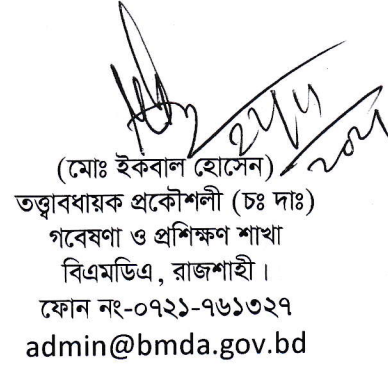 (মোঃ ইকবাল হোসেন)
তত্ত্বাবধায়ক প্রকৌশলী (চঃ দাঃ)
গবেষণা ও প্রশিক্ষণ শাখা
বিএমডিএ, রাজশাহী।
ফোন নং-০৭২১-৭৬১৩২৭
admin@bmda.gov.bd